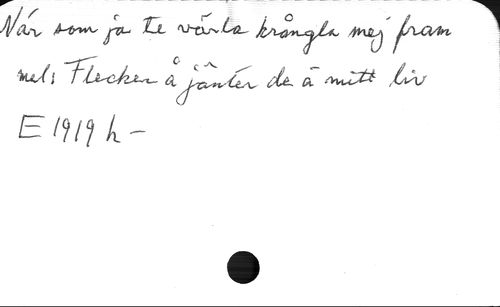 När som ja te värla krångla mej fram
mel: Flecker å jänter de ä mitt liv
E 1919 h –